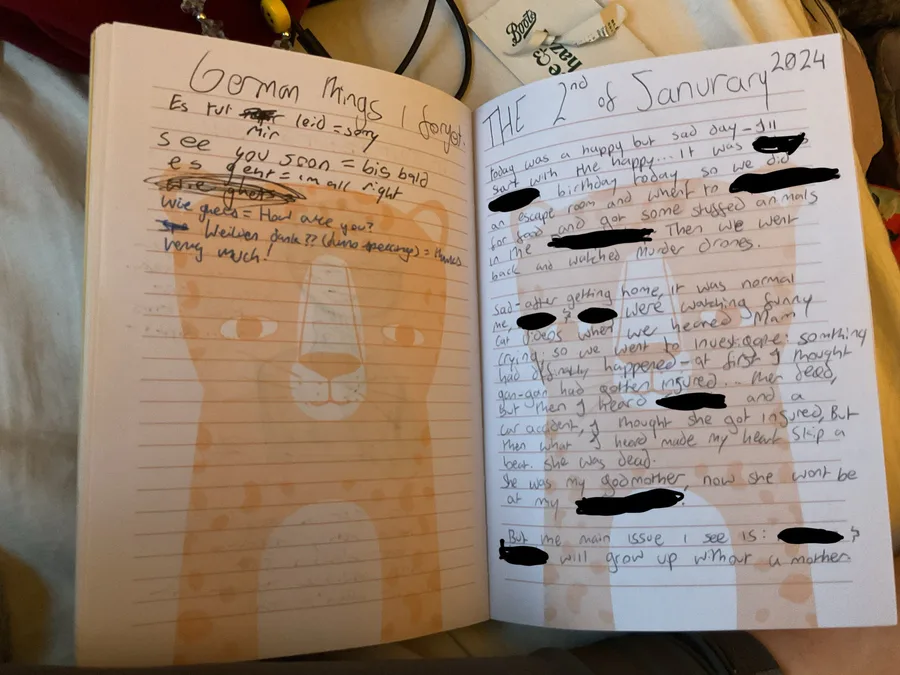 Boots
German Things I forget.
Es tut leid = sorry
mir
see you soon = bis bald
es geht = im all right
wie geht's = How are you?
dank?? (duno spelling) = thanks
very much!
THE 2nd of Janurary 2024
Today was a happy but sad day - I'll
start with the happy... it was
birthday today so we did
an escape room and went to
for food and got some stuffed animals
in the Then we went
back and watched Murder drones.
sad - after getting home, it was normal
me, & were watching funny
cat videos when we heared Mam
crying, so we went to investigate: something
had happened - at first I thought
gan-gan had gotten injured... then dead,
But then I heard and a
car accident, I thought she got injured, But
then what I heard made my heart skip a
beat. she was dead.
She was my godmother, now she wont be
at my
But the main issue I see is: &
will grow up without a mother.